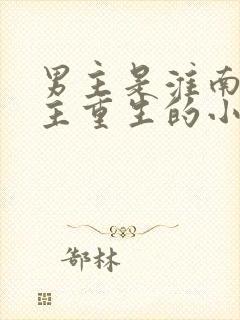 男主是淮南
主重生的小
郜林